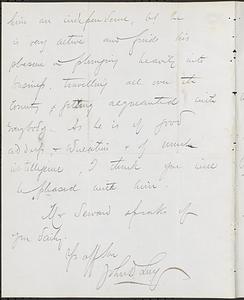 him an independence, but he
is very active and finds his
pleasure in plunging heavily into
business, travelling all over the
country & getting acquainted with
everybody. As he is of good
address & education & of much
intelligence I think you will
be pleased with him.
Mr Seward speaks of
you daily.
Yrs aff
John D